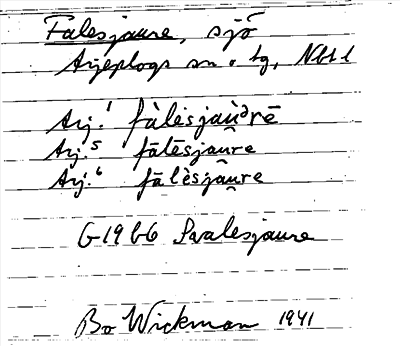 Falesjaure, sjö
Arjeplogs sn. o. tg, Nbtl
Arj.¹ fàlėsjau̯ᵊrē
Arj.⁵ fālēsjau̯re
Arj.⁶ fālèsjâu̯re
G1966 Svalesjaure
Bo Wickman 1941